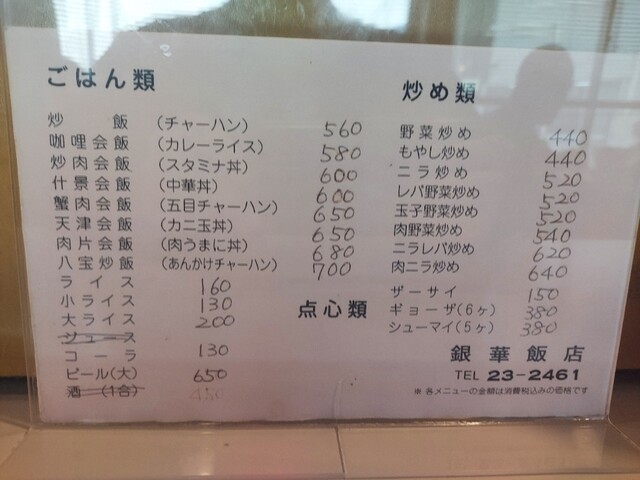 ごはん類
炒飯 (チャーハン) 560
咖哩会飯 (カレーライス) 580
炒肉会飯 (スタミナ丼) 600
什景会飯 (中華丼) 600
蟹肉会飯 (五目チャーハン) 650
天津会飯 (カニ玉丼) 650
肉片会飯 (肉うまに丼) 680
八宝炒飯 (あんかけチャーハン) 700
ライス 160
小ライス 130
大ライス 200
ジュース
コーラ 130
ビール(大) 650
酒(1合)
炒め類
野菜炒め 440
もやし炒め 440
ニラ炒め 520
レバ野菜炒め 520
玉子野菜炒め 520
肉野菜炒め 540
ニラレバ炒め 620
肉ニラ炒め 640
点心類
ザーサイ 150
ギョーザ(6ヶ) 380
シューマイ(5ヶ) 380
銀華飯店
TEL 23-2461
※各メニューの金額は消費税込みの価格です